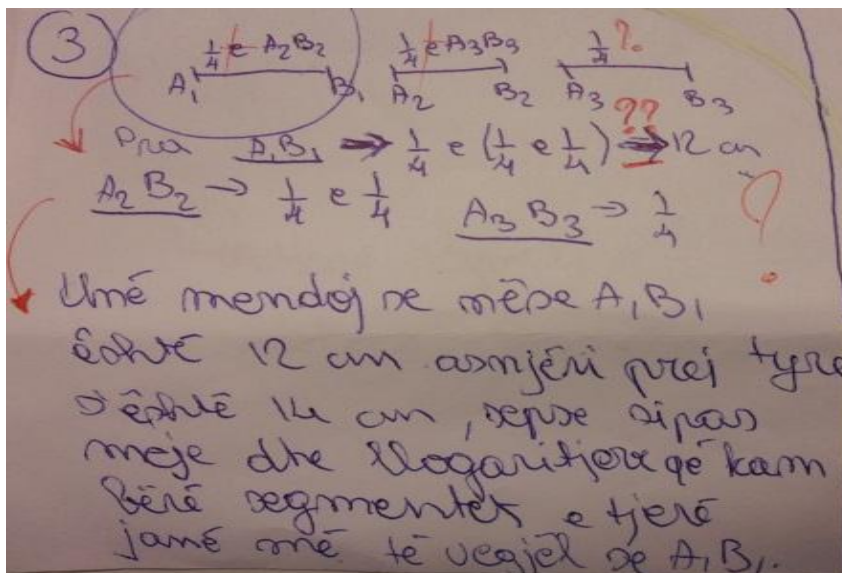 3
1/4 e A2B2 1/4 e A3B3 1/4 ?
A1 B1 A2 B2 A3 B3
??
Pra A1B1 → 1/4 e (1/4 e 1/4) → 12 cm
A2B2 → 1/4 e 1/4 A3B3 → 1/4 ?
Unë mendoj se nëse A1B1
është 12 cm asnjëri prej tyre
s'është 14 cm, sepse sipas
meje dhe llogaritjeve që kam
bërë segmentet e tjerë
janë më të vegjël se A1B1.